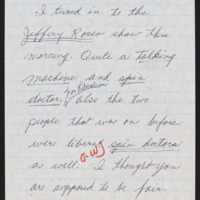 I tuned in to the
Jeffery Rosen show this
morning. Quite a talking
machine and spin
doctor, for liberalism also the two
people that was on before
were liberal spin doctors
as well. I thought you
are supposed to be fair